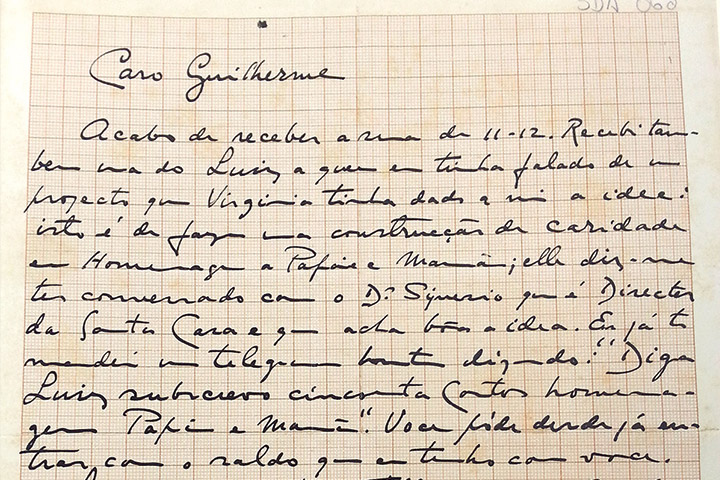 SDA 060
Caro Guilherme
Acabo de receber a sua de 11-12. Recebi tam-
bem uma do Luiz a quem eu tinha falado de um
projecto que Virginia tinha dado a mi a idea:
isto é de fazer uma construcção de caridade
en Homenagem a Papai e Mamã; elle diz-me
ter conversado com o Dr. Synesio que é Director
da Santa Casa e que acha bôa a idea. Eu já te
mandei um telegrama hontem dizendo: "Diga
Luiz subscrevo cincoenta Contos homena-
gem Papai e Mamã". Voce póde desde já en-
trar com o saldo que eu tenho com voce.